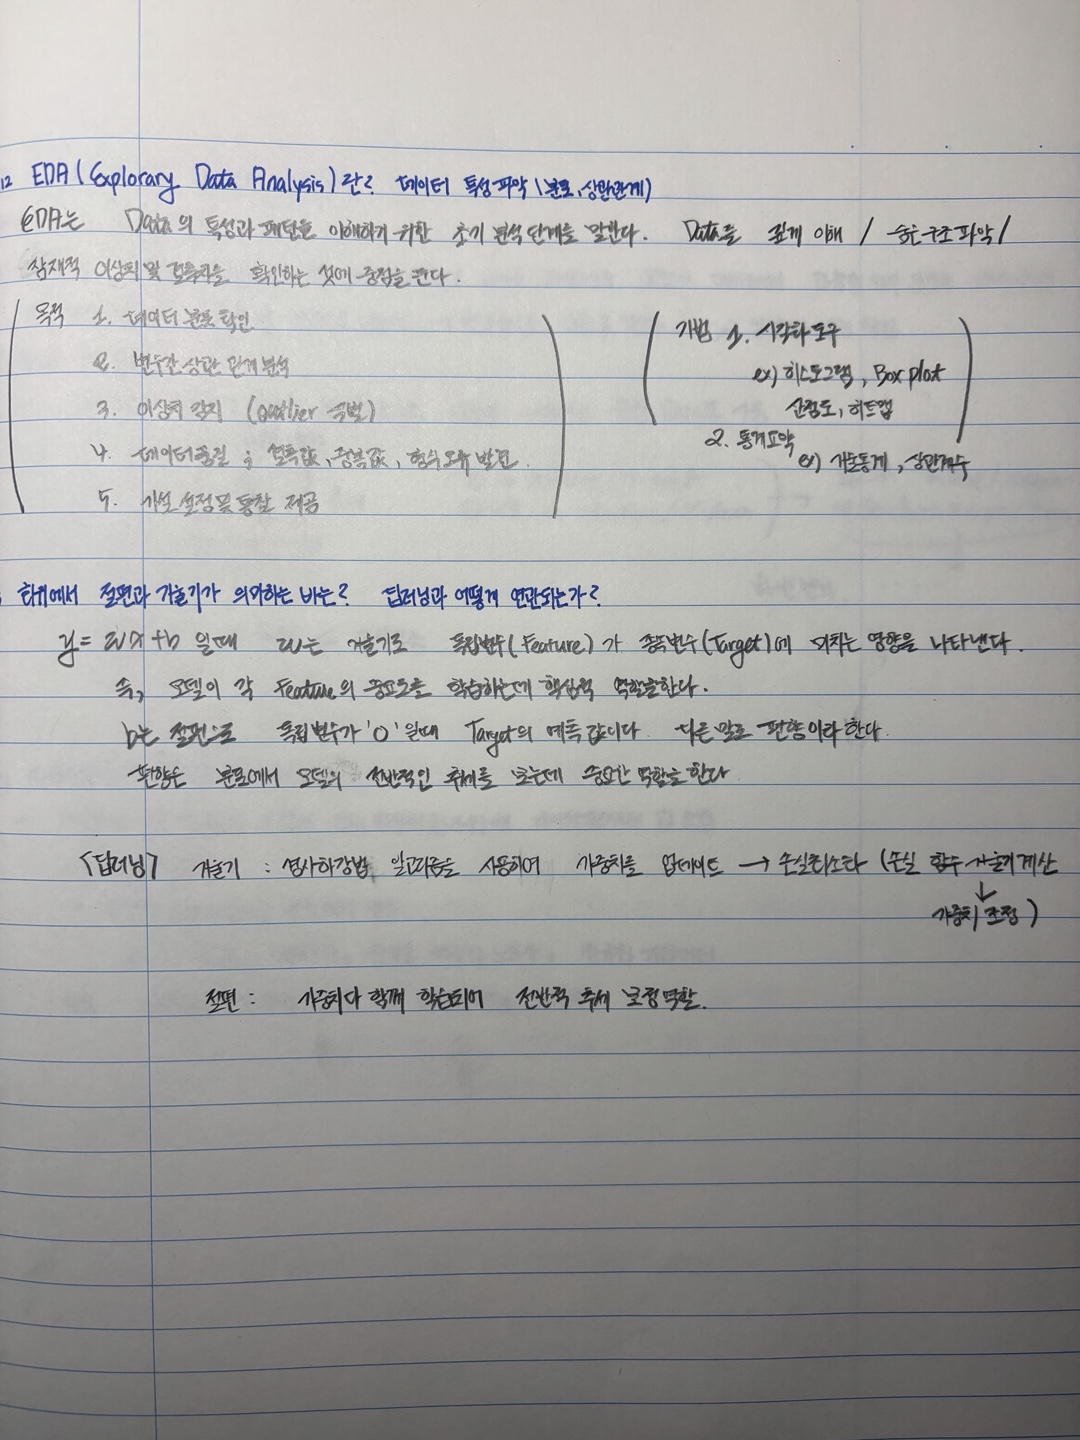 12 EDA (Explorary Data Analysis)란? 데이터 특성파악 (분포, 상관관계)
EDA는 Data의 특성과 패턴을 이해하기 위한 초기 분석 단계를 말한다. Data를 깊게 이해 / 숨은 구조 파악 /
잠재적 이상치 및 결측치를 확인하는 것에 중점을 둔다.
목적 1. 데이터 분포 확인
2. 변수간 상관 관계 분석
3. 이상치 감지 (Outlier 식별)
4. 데이터품질 ; 결측값, 중복값, 형식오류 발견
5. 가설 설정 및 통찰 제공
기법 1. 시각화 도구
ex) 히스토그램, Box plot
산점도, 히트맵
2. 통계요약
ex) 기술통계, 상관계수
회귀에서 절편과 기울기가 의미하는 바는? 딥러닝과 어떻게 연관되는가?
y = wx + b 일때 w는 기울기로 독립변수(Feature)가 종속변수(Target)에 미치는 영향을 나타낸다.
즉, 모델이 각 Feature의 중요도를 학습하는데 핵심적 역할을한다.
b는 절편으로 독립변수가 '0'일때 Target의 예측값이다. 다른 말로 편향이라 한다.
편향은 분포에서 모델의 전반적인 추세를 보는데 중요한 역할을 한다
「딥러닝」 기울기 : 경사하강법 알고리즘을 사용하여 가중치를 업데이트 → 손실최소화 (손실 함수 기울기 계산
↓
가중치 조정)
절편 : 가중치와 함께 학습되어 전반적 추세 보정역할.